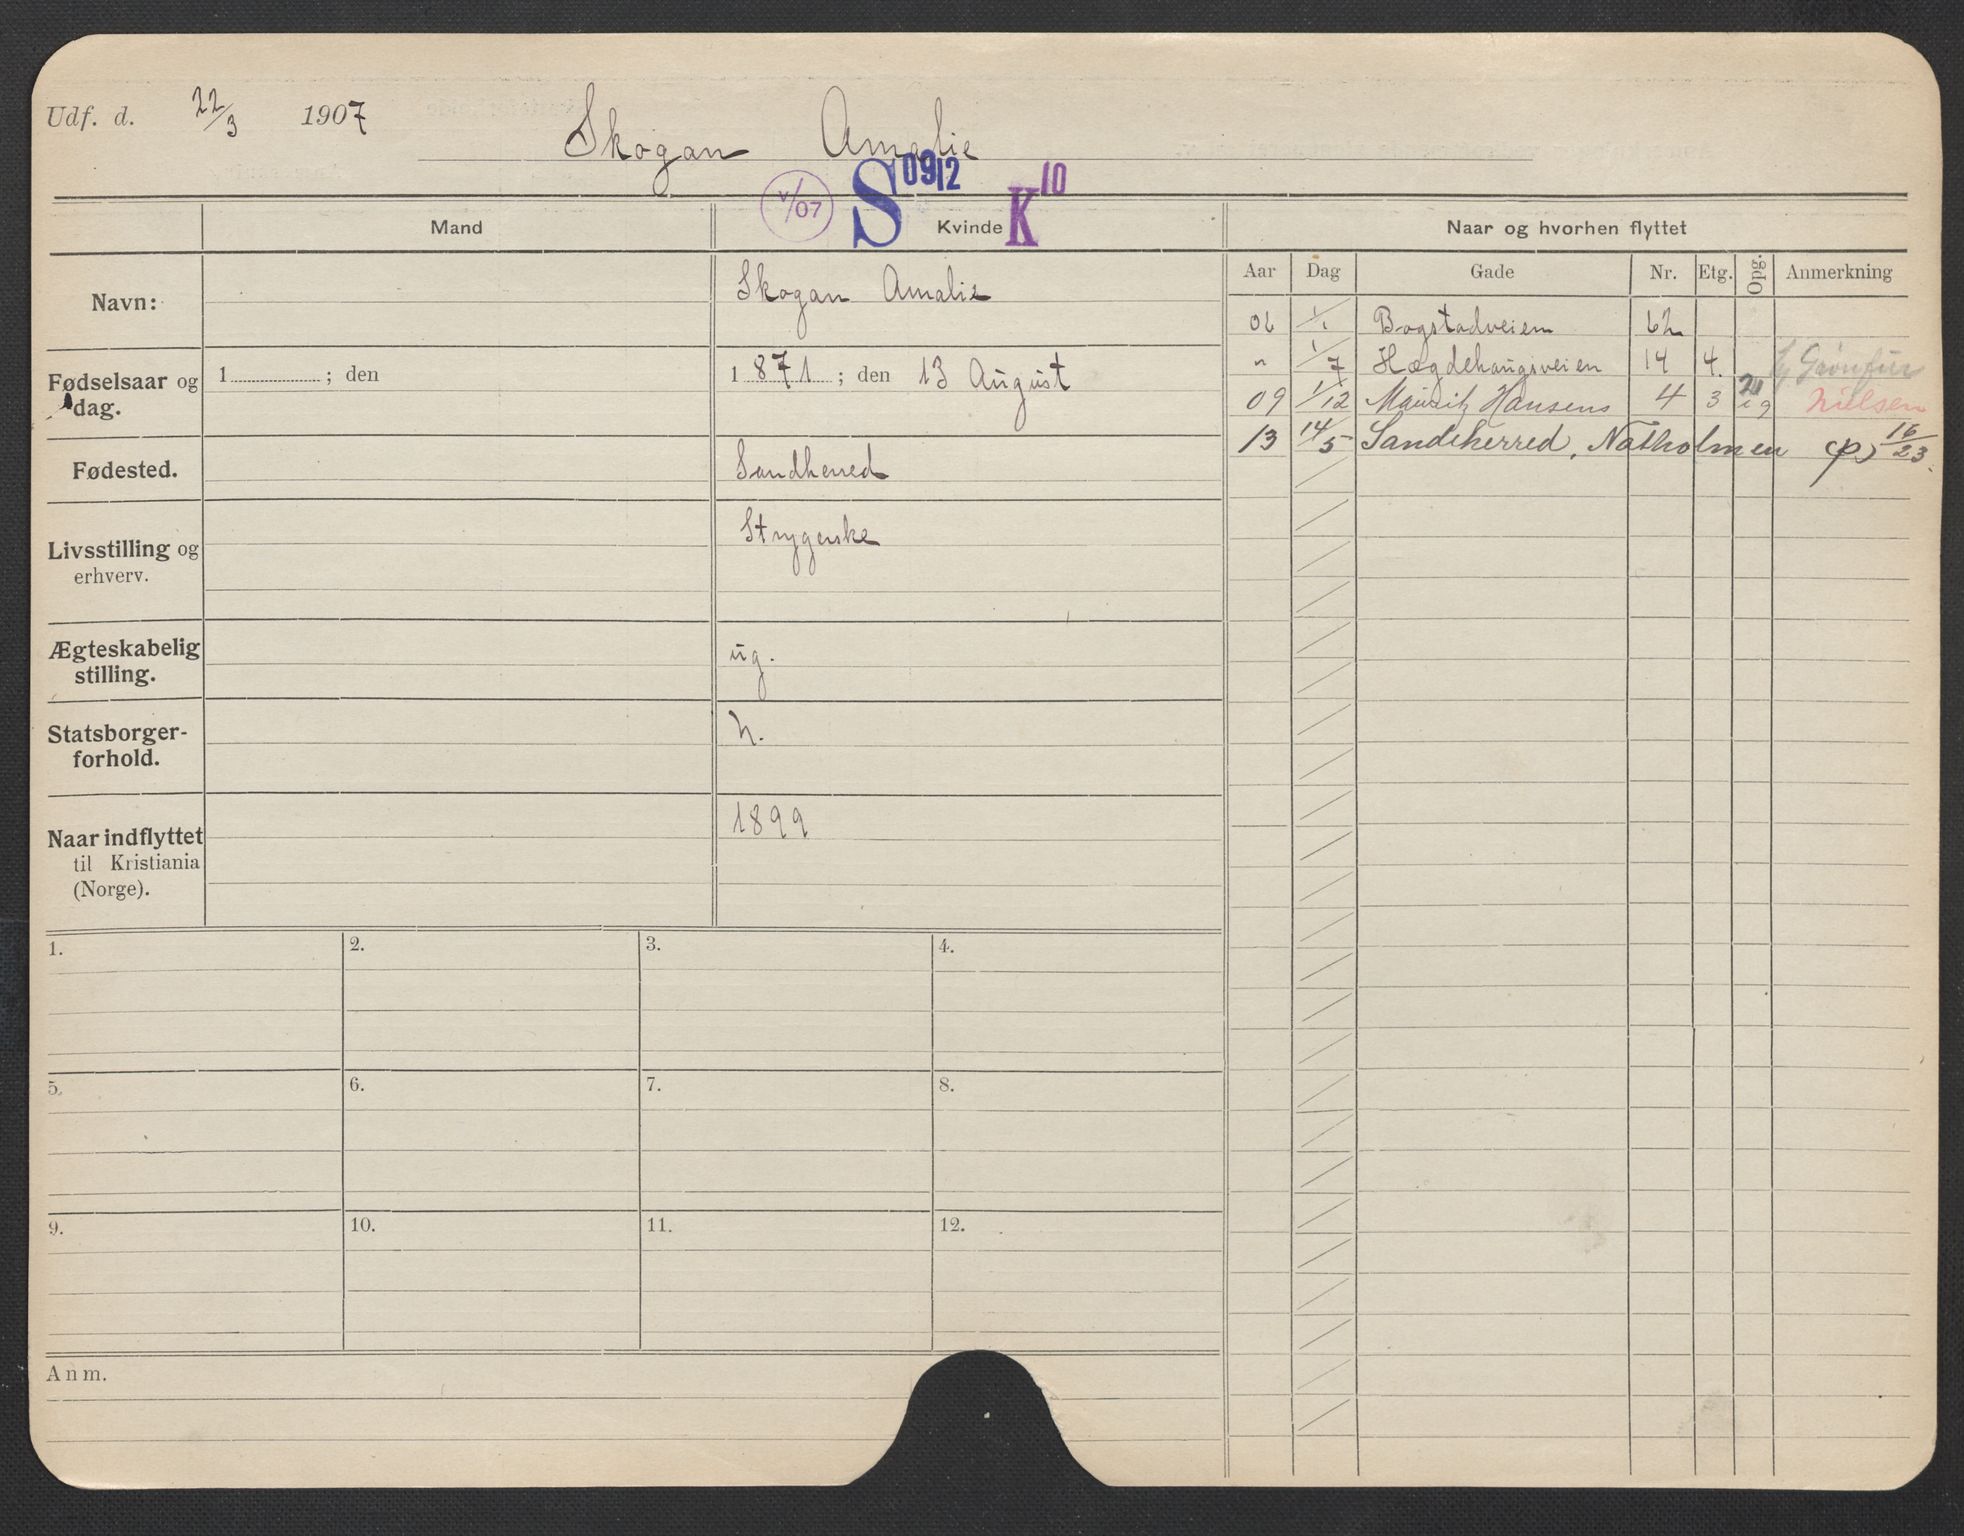 Udf. d. 22/3 1907
Skogan Amalie
V/07 S 0912 K 10
Mand Kvinde Naar og hvorhen flyttet
Aar Dag Gade Nr. Etg. Opg. Anmerkning
Navn: Skogan Amalie
06 1/1 Bogstadveien 62
" 1/7 Hægdehaugsveien 14 4.
09 1/12 Mauritz Hansens 4 3 Nielsen
13 14/5 Sandeherred, Natholmen 15/23.
Fødselsaar og dag. 1 ; den 1871 ; den 13 August
Fødested. Sandherred
Livsstilling og erhverv. Strygerske
Ægteskabelig stilling. ug.
Statsborgerforhold. n.
Naar indflyttet til Kristiania (Norge). 1899
1. 2. 3. 4.
5. 6. 7. 8.
9. 10. 11. 12.
Anm.